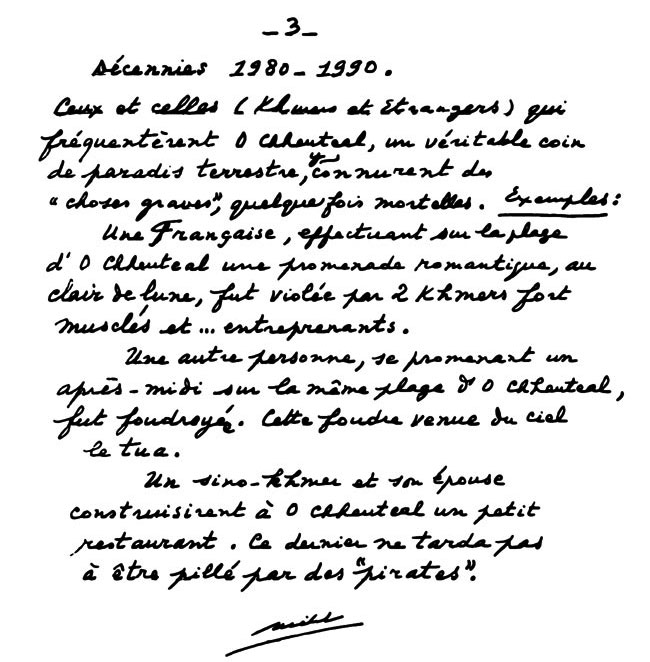 -3-
Décennies 1980-1990.
Ceux et celles (Khmers et Etrangers) qui
fréquentèrent O Chheuteal, un véritable coin
de paradis terrestre, y connurent des
"choses graves", quelque fois mortelles. Exemples:
Une Française, effectuant sur la plage
d'O Chheuteal une promenade romantique, au
clair de lune, fut violée par 2 Khmers fort
musclés et... entreprenants.
Une autre personne, se promenant un
après-midi sur la même plage d'O Chheuteal,
fut foudroyée. Cette foudre venue du ciel
le tua.
Un sino-khmer et son épouse
construisirent à O Chheuteal un petit
restaurant. Ce dernier ne tarda pas
à être pillé par des "pirates".